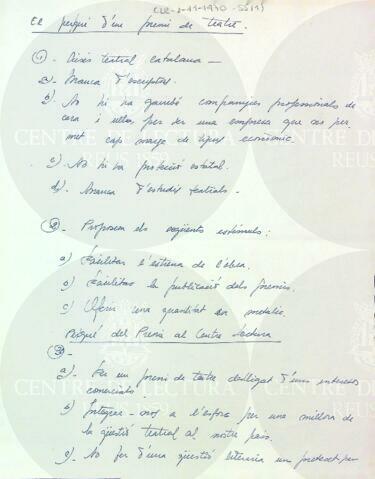 CLR-2-11-1970-
El perquè d'un premi de teatre.
① - Crisis teatral catalana -
a) - Manca d'escriptors.
b) - No hi ha gairebé companyies professionals de
cara i ulls, per ser una empresa que no per
met cap marge de tipus econòmic.
c) - No hi ha protecció estatal.
d) - Manca d'estudis teatrals -
② - Proposem els següents estímuls:
a) Facilitar l'estrena de l'obra.
b) Facilitar la publicació dels premis.
c) Oferir una quantitat en metàl·lic.
Perquè del Premi al Centre Lectura
③ -
a) - Fer un premi de teatre deslligat d'uns interessos
comercials
b) Integrar-nos a l'esforç per una millora
de la qüestió teatral al nostre país.
c) - No fer d'una qüestió literaria un pretext per
CENTRE DE LECTURA
REUS 1859